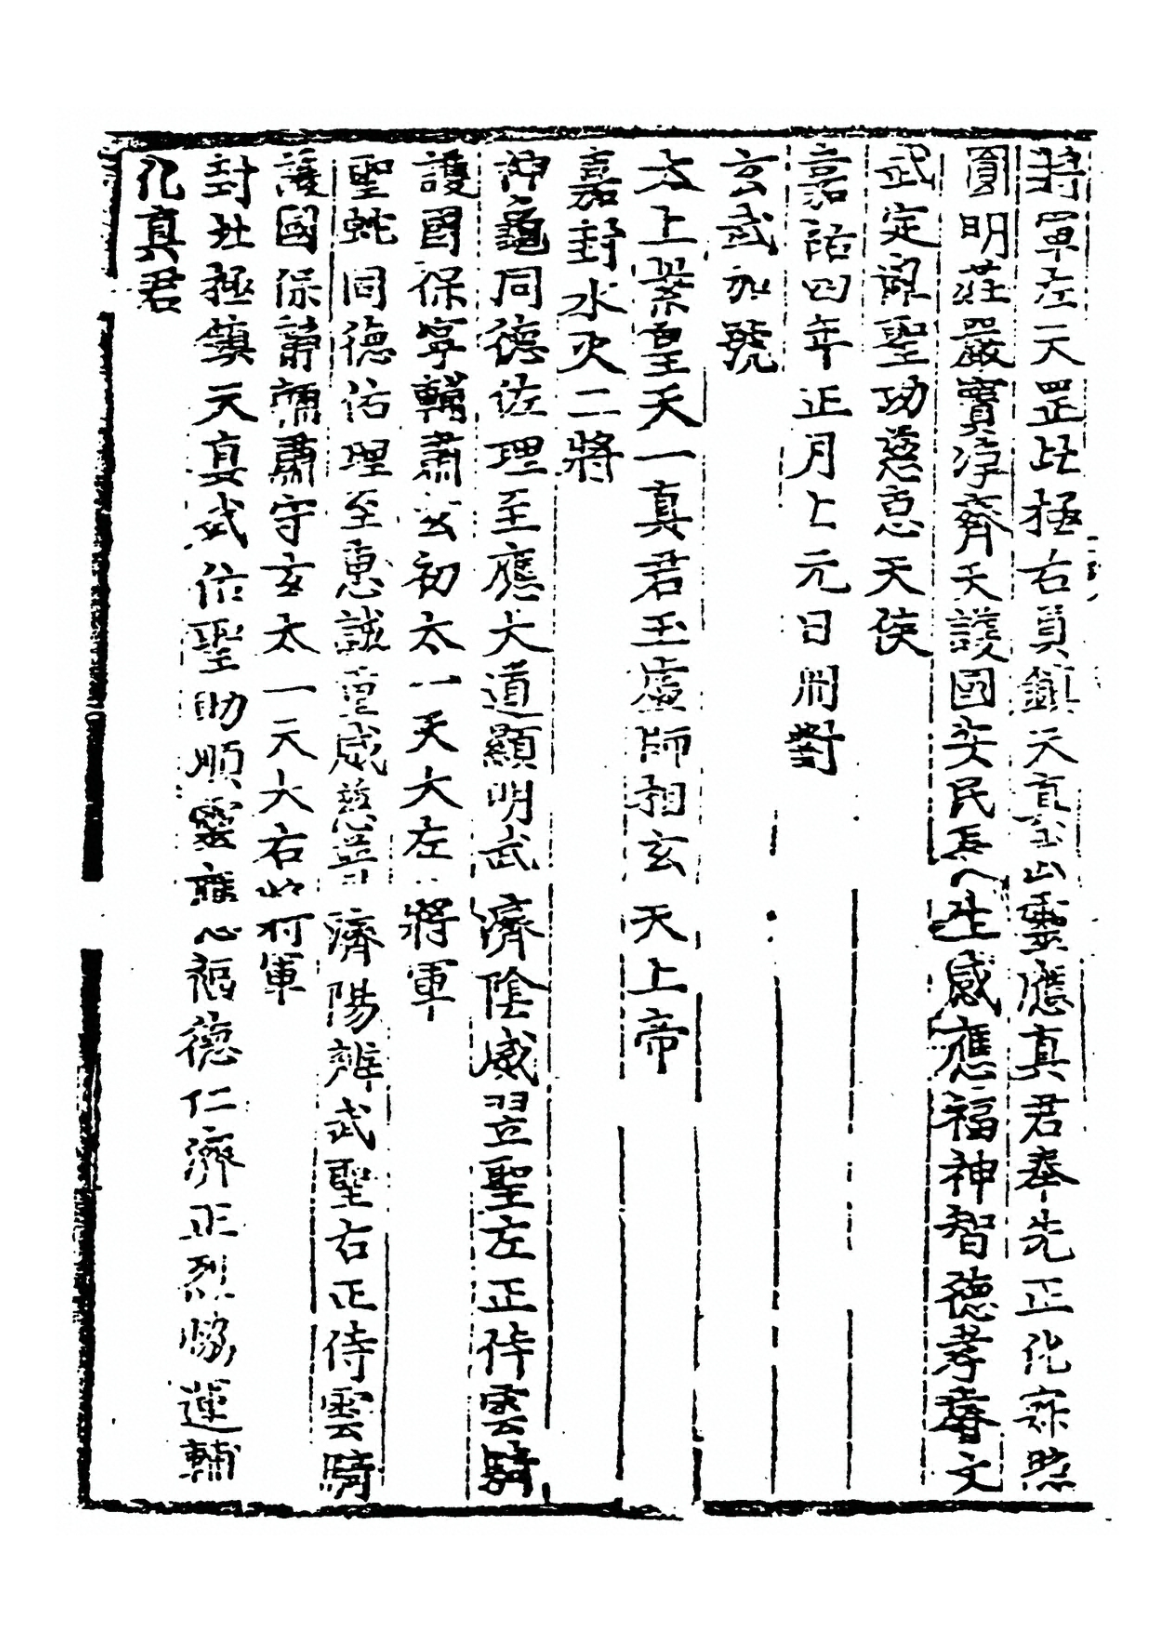 將軍左天罡北極右員鎮天真武靈應真君奉先正化寂照
圓明莊嚴寶淨齊天護國安民長生感應福神智德孝睿文
武定亂聖功慈惠天侯
嘉祐四年正月上元日開對
玄武加號
太上紫皇天一真君玉虛師相玄天上帝
嘉封水火二將
神龜同德佐理至應大道顯明武濟陰威翌聖左正侍雲騎
護國保寧輔肅玄初太一天大左將軍
聖蛇同德佑理至惠誠重威慈普濟陽辨武聖右正侍雲騎
護國保肅守玄太一天大右將軍
封北極鎮天真武佑聖助順靈應福德仁濟正烈協運輔
化真君